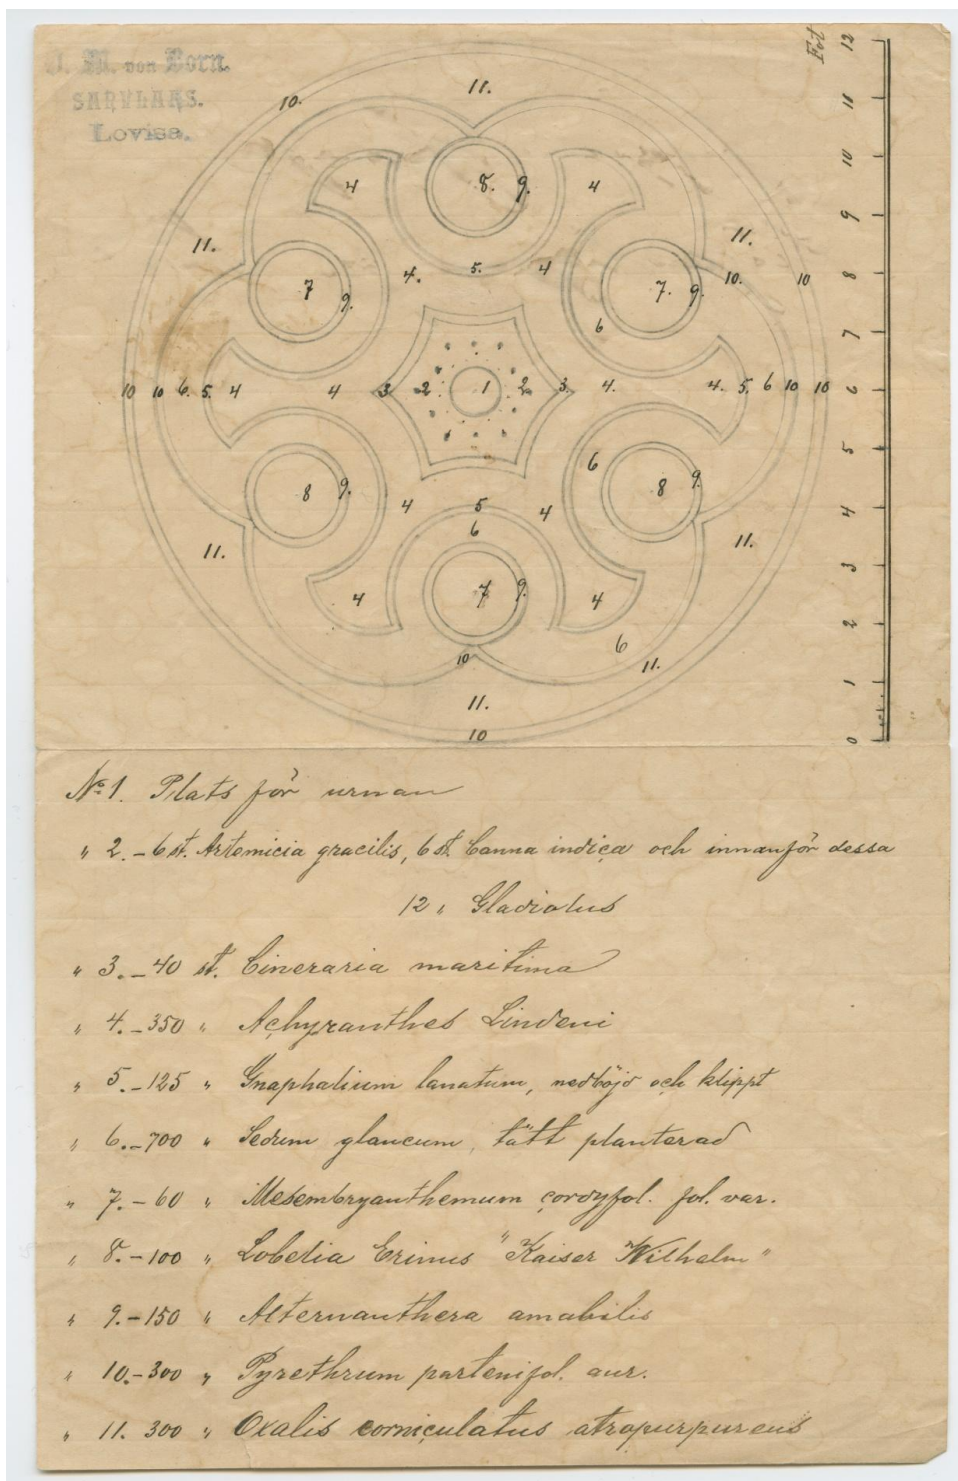 J. M. von Born.
SARVLAKS.
Lovisa.
Fot
12
11
10
9
8
7
6
5
4
3
2
1
0
11.
10.
4 8. 9. 4
11. 11.
4. 5. 4
7 9. 7. 9. 10. 10
6
10 10 6. 5. 4 4 3 2 1 2 3. 4. 4. 5. 6 10 10
6
8 9. 8 9.
4 5 4
6
11. 11.
4 7 9. 4
6
10 11.
11.
10
No 1. Plats för urnan
" 2. - 6 st. Artemicia gracilis, 6 st. Canna indica och innanför dessa
12 " Gladiolus
" 3. - 40 st. Cineraria maritima
" 4. - 350 " Achyranthes Lindeni
" 5. - 125 " Gnaphalium lanatum, nedböjd och klippt
" 6. - 700 " Sedum glaucum, tätt planterad
" 7. - 60 " Mesembryanthemum cordyfol. fol. var.
" 8. - 100 " Lobelia Erinus "Kaiser Wilhelm"
" 9. - 150 " Alternanthera amabilis
" 10. - 300 " Pyrethrum partenifol. aur.
" 11. 300 " Oxalis corniculatus atropurpureus